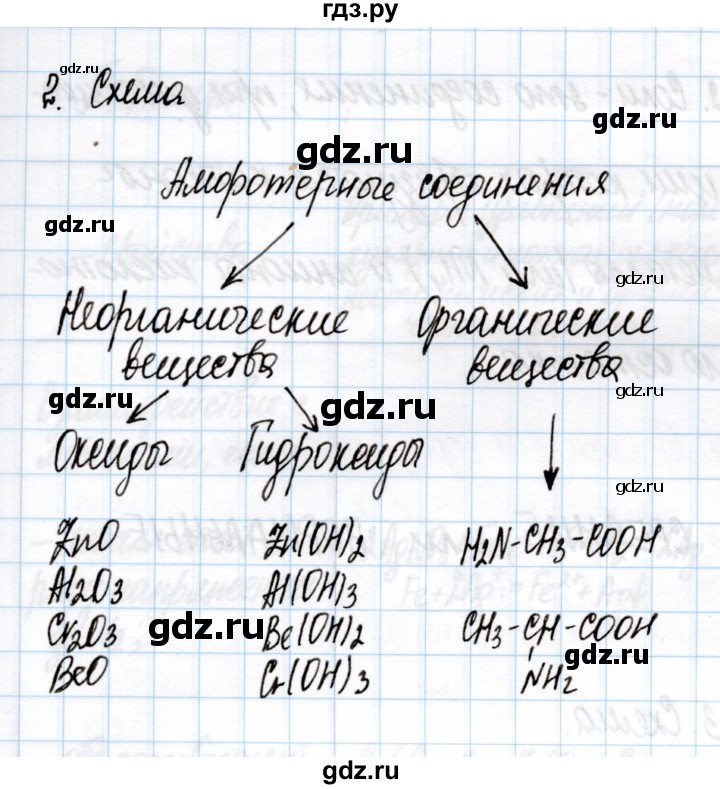 гдз.ру
gdz.ru
2. Схема
gdz.ru
gdz.ru
Амфотерные соединения
gdz.ru
gdz.ru
Неорганические Органические
вещества вещества
gdz.ru gdz.ru gdz.ru
Оксиды Гидроксиды
gdz.ru
ZnO Zn(OH)2 H2N-CH3-COOH
Al2O3 Al(OH)3
Cr2O3 gdz.ru Be(OH)2 CH3-CH-COOH
gdz.ru
BeO Cr(OH)3 NH2
gdz.ru